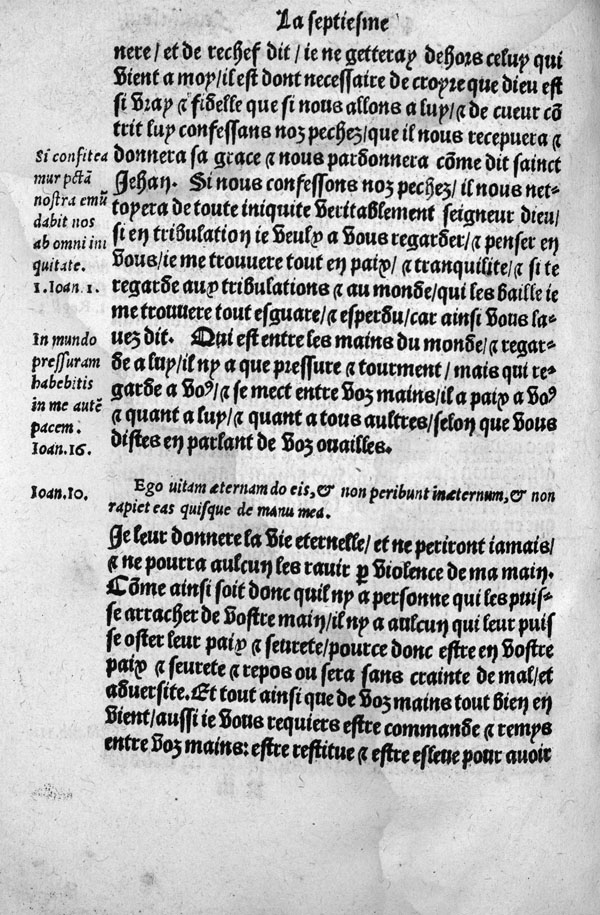 La septiesme
nere/et de rechef dit/ie ne getteray dehors celuy qui
vient a moy/il est dont necessaire de croyre que dieu est
si vray ⁊ fidelle que si nous allons a luy/⁊ de cueur cõ
trit luy confessans noz pechez/que il nous recepuera ⁊
donnera sa grace ⁊ nous pardonnera cõme dit sainct
Jehan. Si nous confessons noz pechez/il nous net-
toyera de toute iniquite veritablement seigneur dieu/
si en tribulation ie veulx a vous regarder/⁊ penser en
vous/ie me trouuere tout en paix/⁊ tranquilite/⁊ si te
regarde aux tribulations ⁊ au monde/qui les baille ie
me trouuere tout esguare/⁊ esperdu/car ainsi vous la-
uez dit. Qui est entre les mains du monde/⁊ regar-
de a luy/il ny a que pressure ⁊ tourment/mais qui re-
garde a voꝰ/⁊ se mect entre voz mains/il a paix a voꝰ
⁊ quant a luy/⁊ quant a tous aultres/selon que vous
distes en parlant de voz ouailles.
Si confitea
mur pctã
nostra emũ
dabit nos
ab omni ini
quitate.
1.Ioan.1.
In mundo
pressuram
habebitis
in me autẽ
pacem.
Ioan.16.
Ioan.10.
Ego uitam æternam do eis,& non peribunt inæternum,& non
rapiet eas quisque de manu mea.
Je leur donnere la vie eternelle/et ne periront iamais/
⁊ ne pourra aulcun les rauir ꝑ violence de ma main.
Cõme ainsi soit donc quil ny a personne qui les puis-
se arracher de vostre main/il ny a aulcun qui leur puis
se oster leur paix ⁊ seurete/pource donc estre en vostre
paix ⁊ seurete ⁊ repos ou sera sans crainte de mal/et
aduersite. Et tout ainsi que de voz mains tout bien en
vient/aussi ie vous requiers estre commande ⁊ remys
entre voz mains: estre restitue ⁊ estre esleue pour auoir